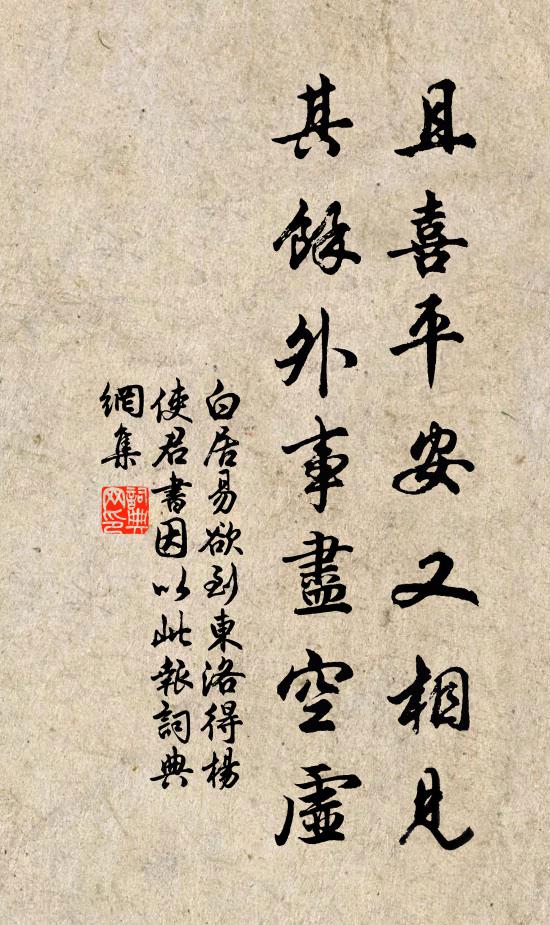 且喜平安又相見
其餘外事盡空虛
白居易欲到東洛得楊
使君書因以此報詞典
網集
詞典
网印